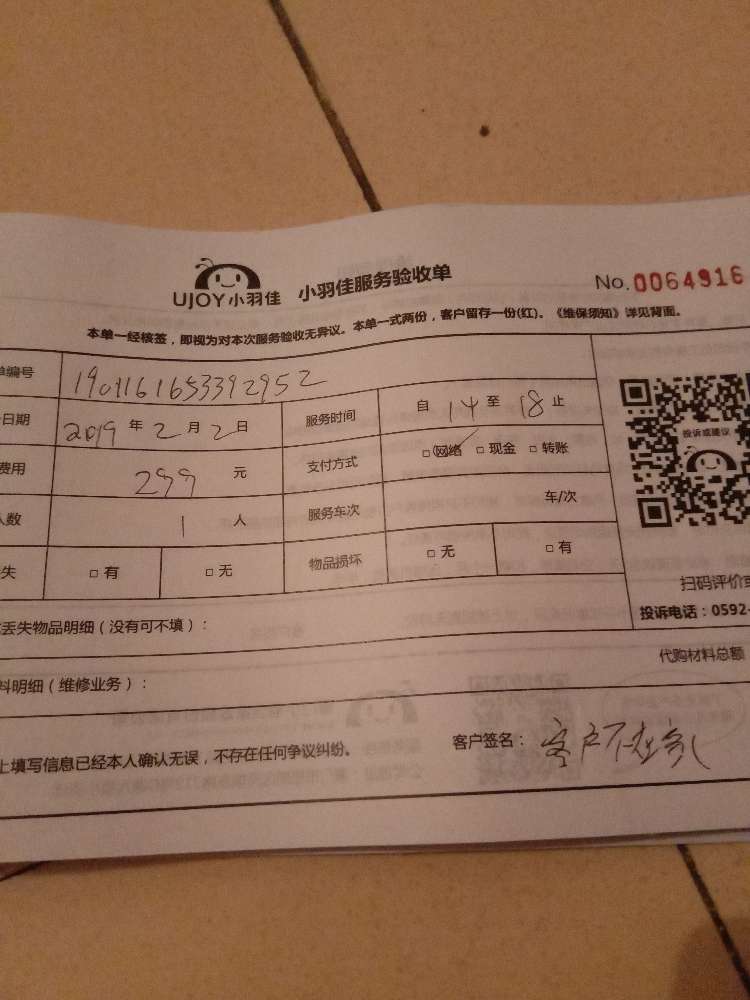 UJOY小羽佳 小羽佳服务验收单 No.0064916
本单一经核签，即视为对本次服务验收无异议。本单一式两份，客户留存一份(红)。《维保须知》详见背面。
单编号 1901161653392952
日期 2019 年 2 月 2 日 服务时间 自 14 至 18 止
费用 299 元 支付方式 □网络 □现金 □转账
人数 1 人 服务车次 车/次
失 □有 □无 物品损坏 □无 □有
投诉或建议
扫码评价或
投诉电话：0592-
丢失物品明细（没有可不填）：
料明细（维修业务）： 代购材料总额
上填写信息已经本人确认无误，不存在任何争议纠纷。 客户签名：客户不在家